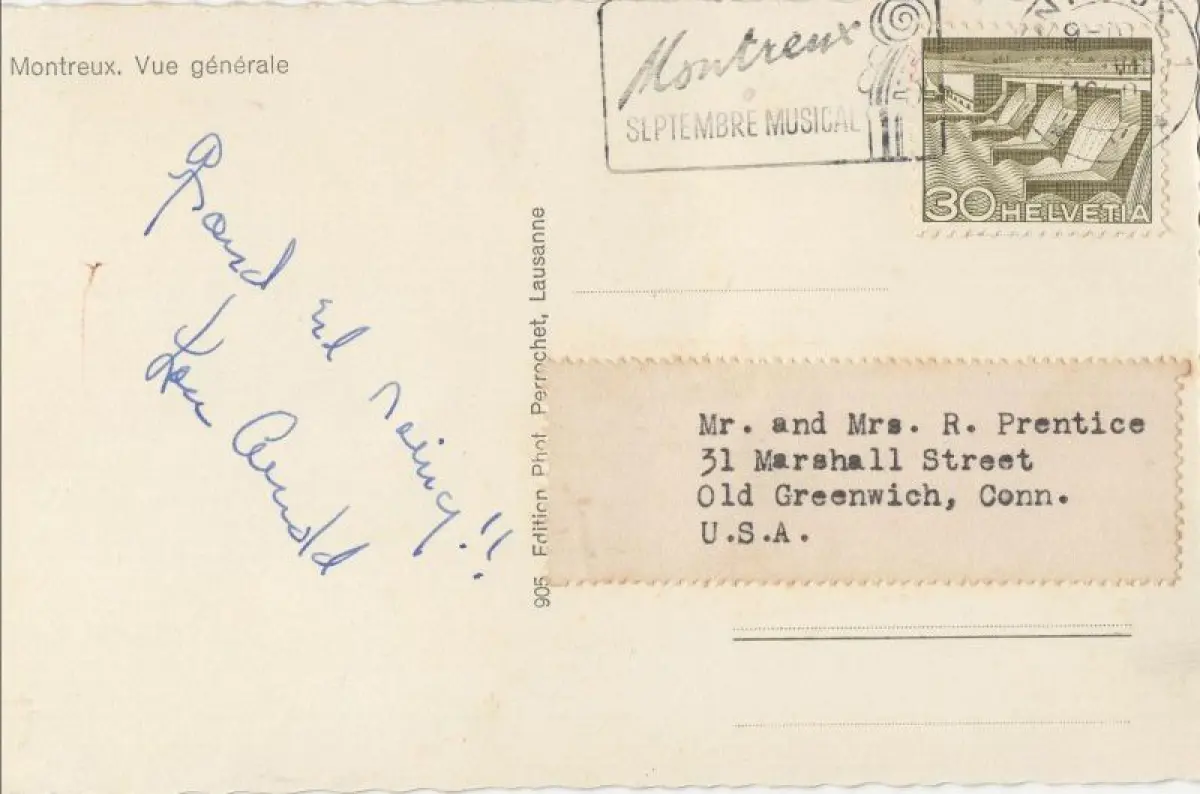 Montreux. Vue générale
Montreux
SEPTEMBRE MUSICAL
30 HELVETIA
Grand and rainy!!
Arnold
905 Edition Phot. Perrochet, Lausanne
Mr. and Mrs. R. Prentice
31 Marshall Street
Old Greenwich, Conn.
U.S.A.